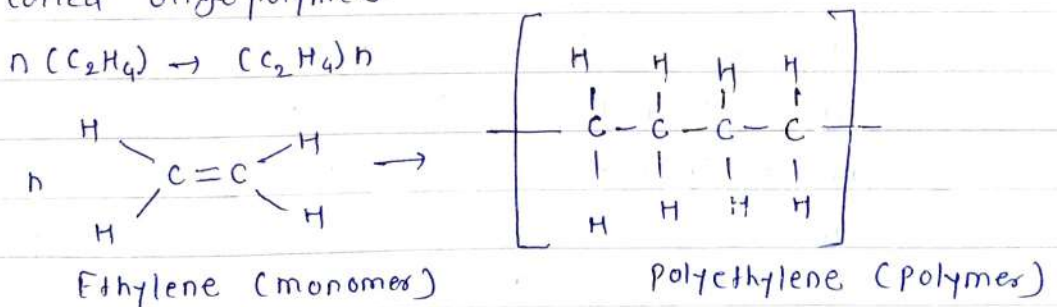 n (C₂H₄) → (C₂H₄)n
H H H H
H H
n C = C → C - C - C - C
H H
H H H H
Ethylene (monomer) polyethylene (polymer)